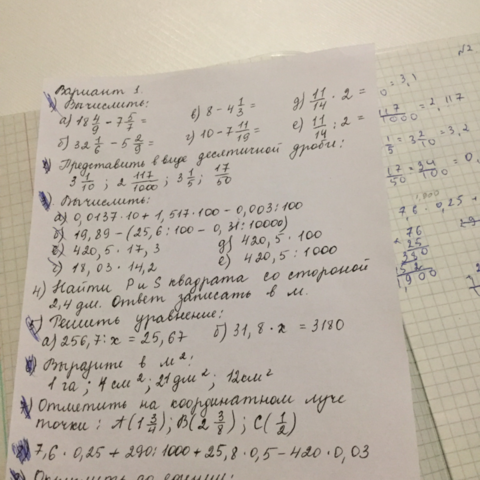 Вариант 1.
Вычислить:
а) 18 4/9 - 7 5/7 =
в) 8 - 4 1/3 =
д) 11/14 · 2 =
б) 32 1/6 - 5 2/9 =
г) 10 - 7 11/19 =
е) 11/14 : 2 =
Представить в виде десятичной дроби:
3 1/10 ; 2 117/1000 ; 3 1/5 ; 17/50
Вычислить:
а) 0,0137 · 10 + 1,517 · 100 - 0,003 : 100
б) 19,89 - (25,6 : 100 - 0,31 : 10000)
в) 420,5 · 17,3
д) 420,5 · 100
г) 18,03 · 14,2
е) 420,5 : 1000
4) Найти P и S квадрата со стороной
2,4 дм. Ответ записать в м.
Решить уравнение:
а) 256,7 : x = 25,67
б) 31,8 · x = 3180
Выразите в м²:
1 га ; 4 см² ; 21 дм² ; 12 см²
Отметить на координатном луче
точки : A(1 3/4) ; B(2 3/8) ; C(1/2)
7,6 · 0,25 + 290 : 1000 + 25,8 · 0,5 - 420 · 0,03
№2
= 3,1
117/1000 = 2,117
= 3,2
7,6 · 0,25 +
76
25
1900